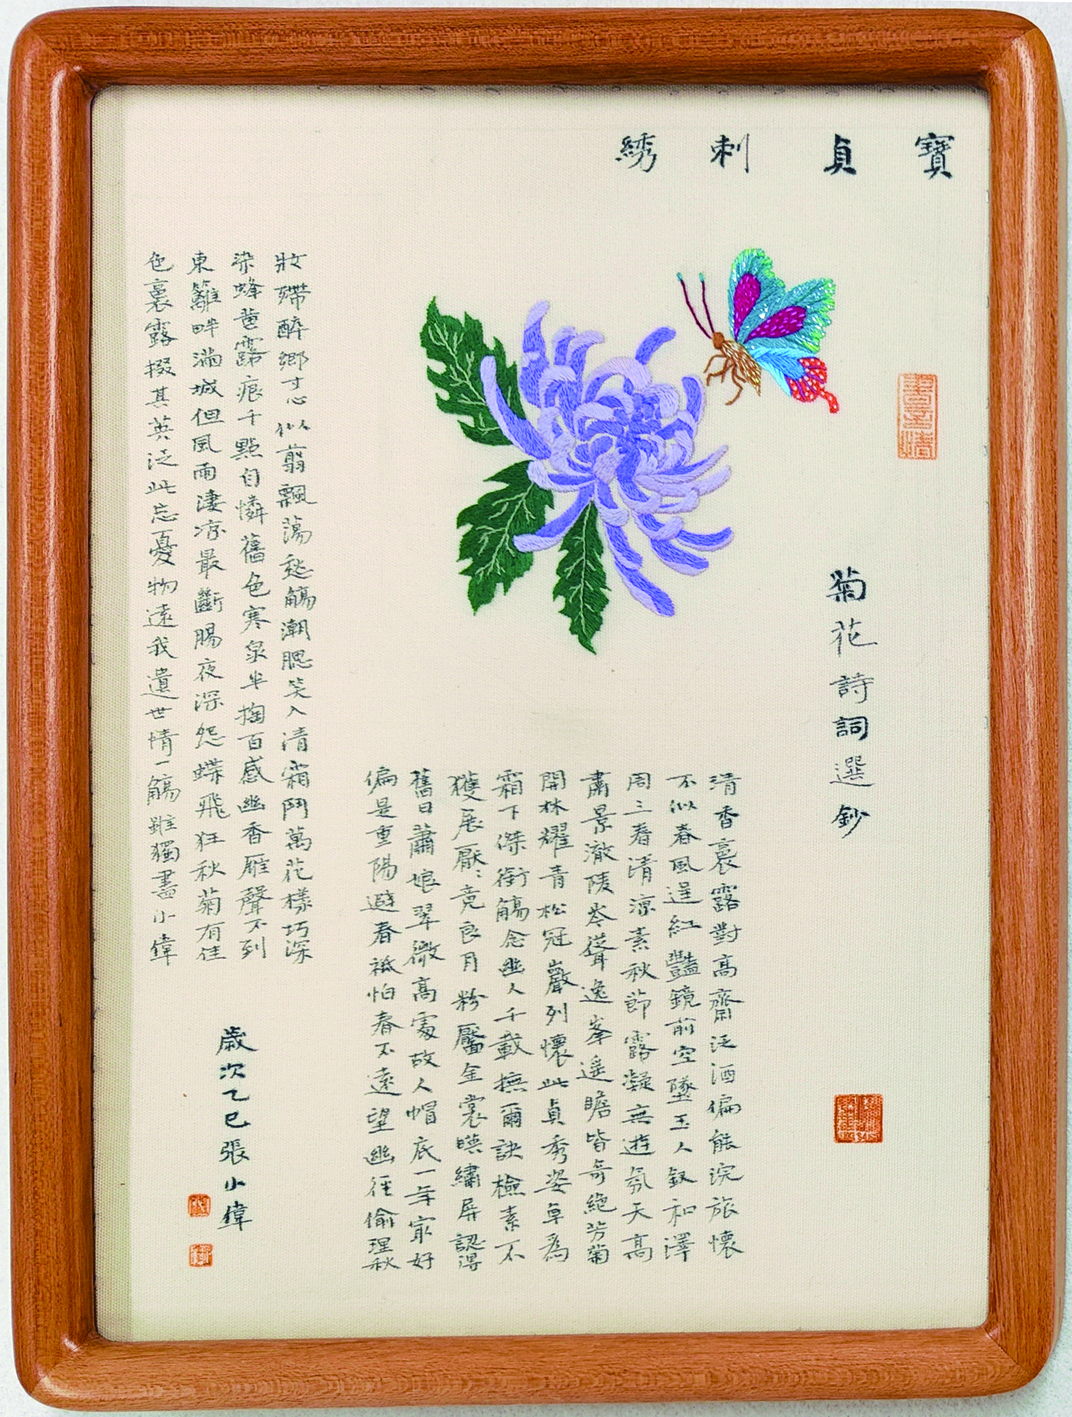 寶貞刺綉
菊花詩詞選鈔
清香裛露對高齋泛酒偏能浣旅懷
不似春風逞紅豔鏡前空墜玉人釵和澤
周三春清涼素秋節露凝無遊氛天高
肅景澈陵岑聳逸峯遥瞻皆奇絶芳菊
開林耀青松冠巖列懷此貞秀姿卓為
霜下傑銜觴念幽人千載撫爾訣檢素不
獲展厭々竟良月粉靨金裳映繡屏認得
舊日蕭娘翠微高處故人帽底一年最好
偏是重陽避春祗怕春不遠望幽徑偷理秋
妝殢醉鄉寸心似翦飄蕩愁觴潮腮笑入清霜鬥萬花樣巧深
染蜂黄露痕千點自憐舊色寒泉半掬百感幽香雁聲不到
東籬畔滿城但風雨淒涼最斷腸夜深怨蝶飛狂秋菊有佳
色裛露掇其英泛此忘憂物遠我遺世情一觴雖獨盡小偉
歲次乙巳張小偉